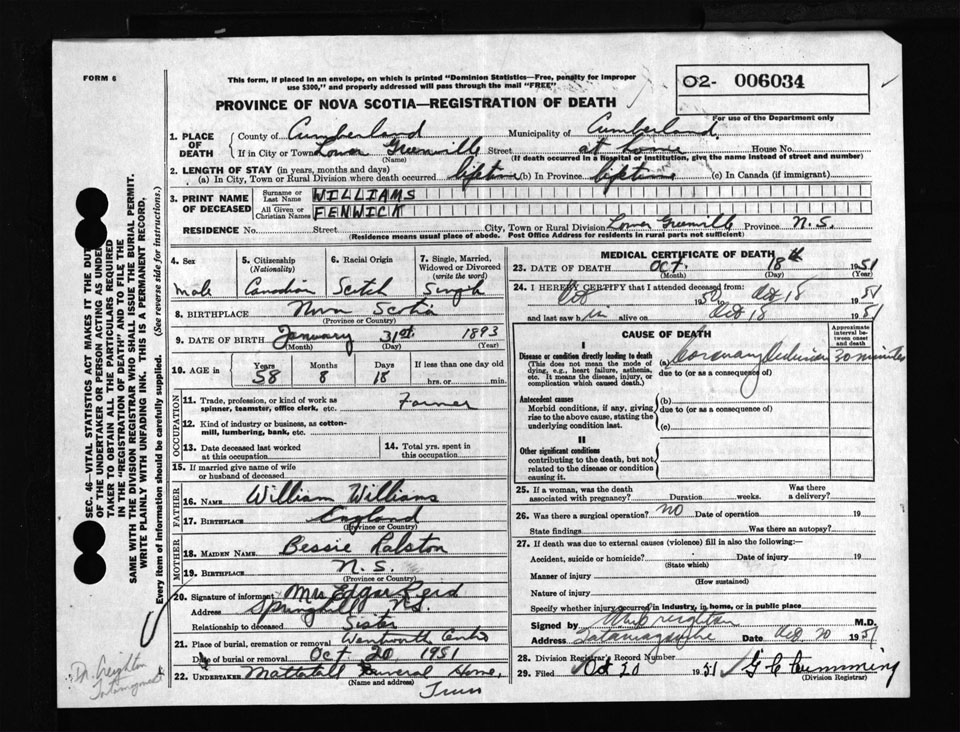 FORM 6
This form, if placed in an envelope, on which is printed "Dominion Statistics—Free, penalty for improper
use $300," and properly addressed will pass through the mail "FREE"
O2- 006034
For use of the Department only
PROVINCE OF NOVA SCOTIA—REGISTRATION OF DEATH
SEC. 46—VITAL STATISTICS ACT MAKES IT THE DUTY
OF THE UNDERTAKER OR PERSON ACTING AS UNDER-
TAKER TO OBTAIN ALL THE PARTICULARS REQUIRED
IN THE "REGISTRATION OF DEATH" AND TO FILE THE
SAME WITH THE DIVISION REGISTRAR WHO SHALL ISSUE THE BURIAL PERMIT.
WRITE PLAINLY WITH UNFADING INK. THIS IS A PERMANENT RECORD.
Every item of information should be carefully supplied. (See reverse side for instructions.)
1. PLACE OF DEATH
County of Cumberland Municipality of Cumberland.
If in City or Town Lower Greenville Street at home House No.
(Name) (If death occurred in a Hospital or Institution, give the name instead of street and number)
2. LENGTH OF STAY (in years, months and days)
(a) In City, Town or Rural Division where death occurred lifetime (b) In Province lifetime (c) In Canada (if immigrant)
3. PRINT NAME OF DECEASED
Surname or Last Name WILLIAMS
All Given or Christian Names FENWICK
RESIDENCE No. Street City, Town or Rural Division Lower Greenville Province N.S.
(Residence means usual place of abode. Post Office Address for residents in rural parts not sufficient)
4. Sex
Male
5. Citizenship
(Nationality)
Canadian
6. Racial Origin
Scotch
7. Single, Married,
Widowed or Divorced
(write the word)
Single
8. BIRTHPLACE Nova Scotia
(Province or Country)
9. DATE OF BIRTH January 31st. 1893
(Month) (Day) (Year)
10. AGE in
Years Months Days If less than one day old
58 8 18 hrs. or min.
OCCUPATION
11. Trade, profession, or kind of work as
spinner, teamster, office clerk, etc. Farmer
12. Kind of industry or business, as cotton-
mill, lumbering, bank, etc.
13. Date deceased last worked
at this occupation
14. Total yrs. spent in
this occupation
15. If married give name of wife
or husband of deceased
FATHER
16. NAME William Williams
17. BIRTHPLACE England
(Province or Country)
MOTHER
18. MAIDEN NAME Bessie Ralston
19. BIRTHPLACE N.S.
(Province or Country)
20. Signature of informant Mrs Edgar Reid
Address Springhill N.S.
Relationship to deceased Sister
21. Place of burial, cremation or removal Wentworth Centre
Date of burial or removal Oct 20, 1951
22. UNDERTAKER Mattatall Funeral Home,
(Name and address) Truro
MEDICAL CERTIFICATE OF DEATH
23. DATE OF DEATH Oct. 18th 1951
(Month) (Day) (Year)
24. I HEREBY CERTIFY that I attended deceased from:
Oct 1950 to Oct 18 1951
and last saw him alive on Oct 18 1951
CAUSE OF DEATH
Approximate
interval be-
tween onset
and death
I
Disease or condition directly leading to death
(This does not mean the mode of
dying, e.g., heart failure, asthenia,
etc. It means the disease, injury, or
complication which caused death.)
(a) Coronary Occlusion 30 minutes
due to (or as a consequence of)
Antecedent causes
Morbid conditions, if any, giving
rise to the above cause, stating the
underlying condition last.
(b)
due to (or as a consequence of)
(c)
II
Other significant conditions
contributing to the death, but not
related to the disease or condition
causing it.
25. If a woman, was the death
associated with pregnancy? Duration weeks. Was there
a delivery?
26. Was there a surgical operation? NO Date of operation 19
State findings Was there an autopsy?
27. If death was due to external causes (violence) fill in also the following:—
Accident, suicide or homicide? Date of injury 19
(State which)
Manner of injury
(How sustained)
Nature of injury
Specify whether injury occurred in industry, in home, or in public place
Signed by Creighton M.D.
Address Tatamagouche Date Oct 20 1951
28. Division Registrar's Record Number
29. Filed Oct 20 1951 G C Cumming
(Division Registrar)
Dr. Creighton